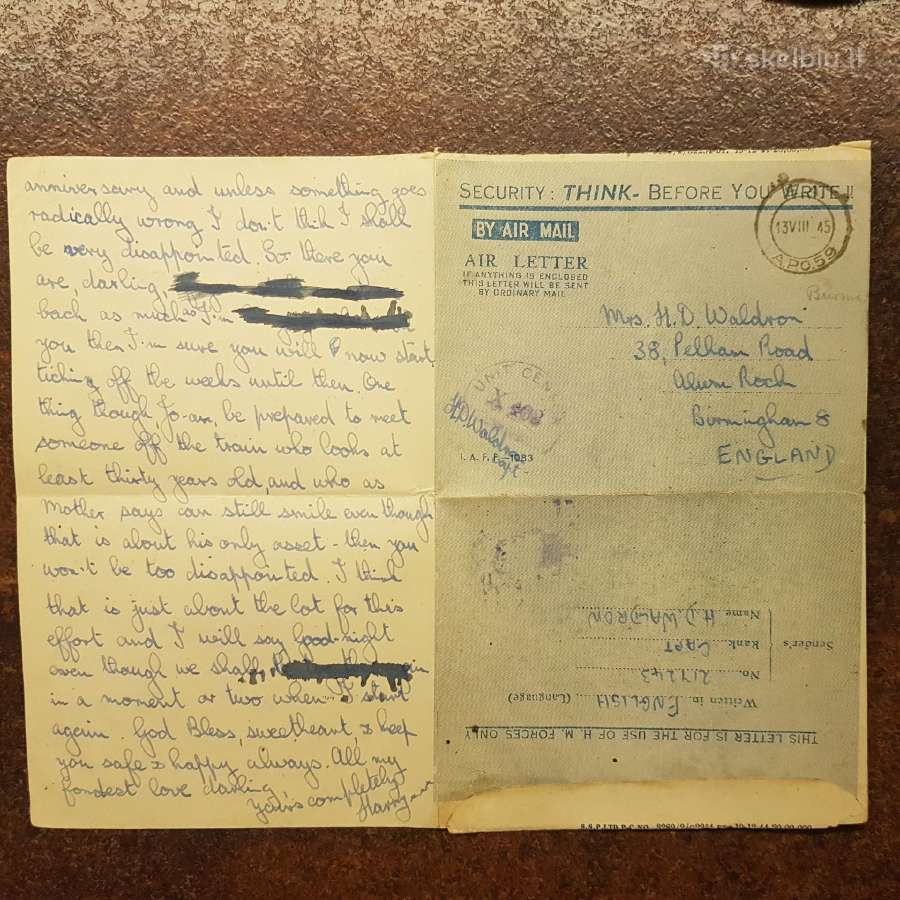 skelbiu.lt
anniversary and unless something goes
radically wrong I don't think I shall
be very disappointed. So there you
are, darling,
back as much as I'm
you then I'm sure you will now start
ticking off the weeks until then. One
thing though, Jo-an, be prepared to meet
someone off the train who looks at
least thirty years old, and who as
Mother says can still smile even though
that is about his only asset - then you
won't be too disappointed. I think
that is just about the lot for this
effort and I will say good-night
even though we shall
in a moment or two when I start
again. God Bless, sweetheart, & keep
you safe & happy always. All my
fondest love darling
yours completely
Harry
SECURITY: THINK- BEFORE YOU WRITE!!
BY AIR MAIL
AIR LETTER
IF ANYTHING IS ENCLOSED
THIS LETTER WILL BE SENT
BY ORDINARY MAIL
13 VIII 45
A.P.O.59
Mrs. H.D. Waldron
38, Pelham Road
Alum Rock
Birmingham 8
ENGLAND
UNIT CEN
HD Waldron
Capt
I.A.F.F.—1083
Sender's
Name H.D. WALDRON
Rank CAPT
No. 217243
Written in ENGLISH (Language)
THIS LETTER IS FOR THE USE OF H.M. FORCES ONLY